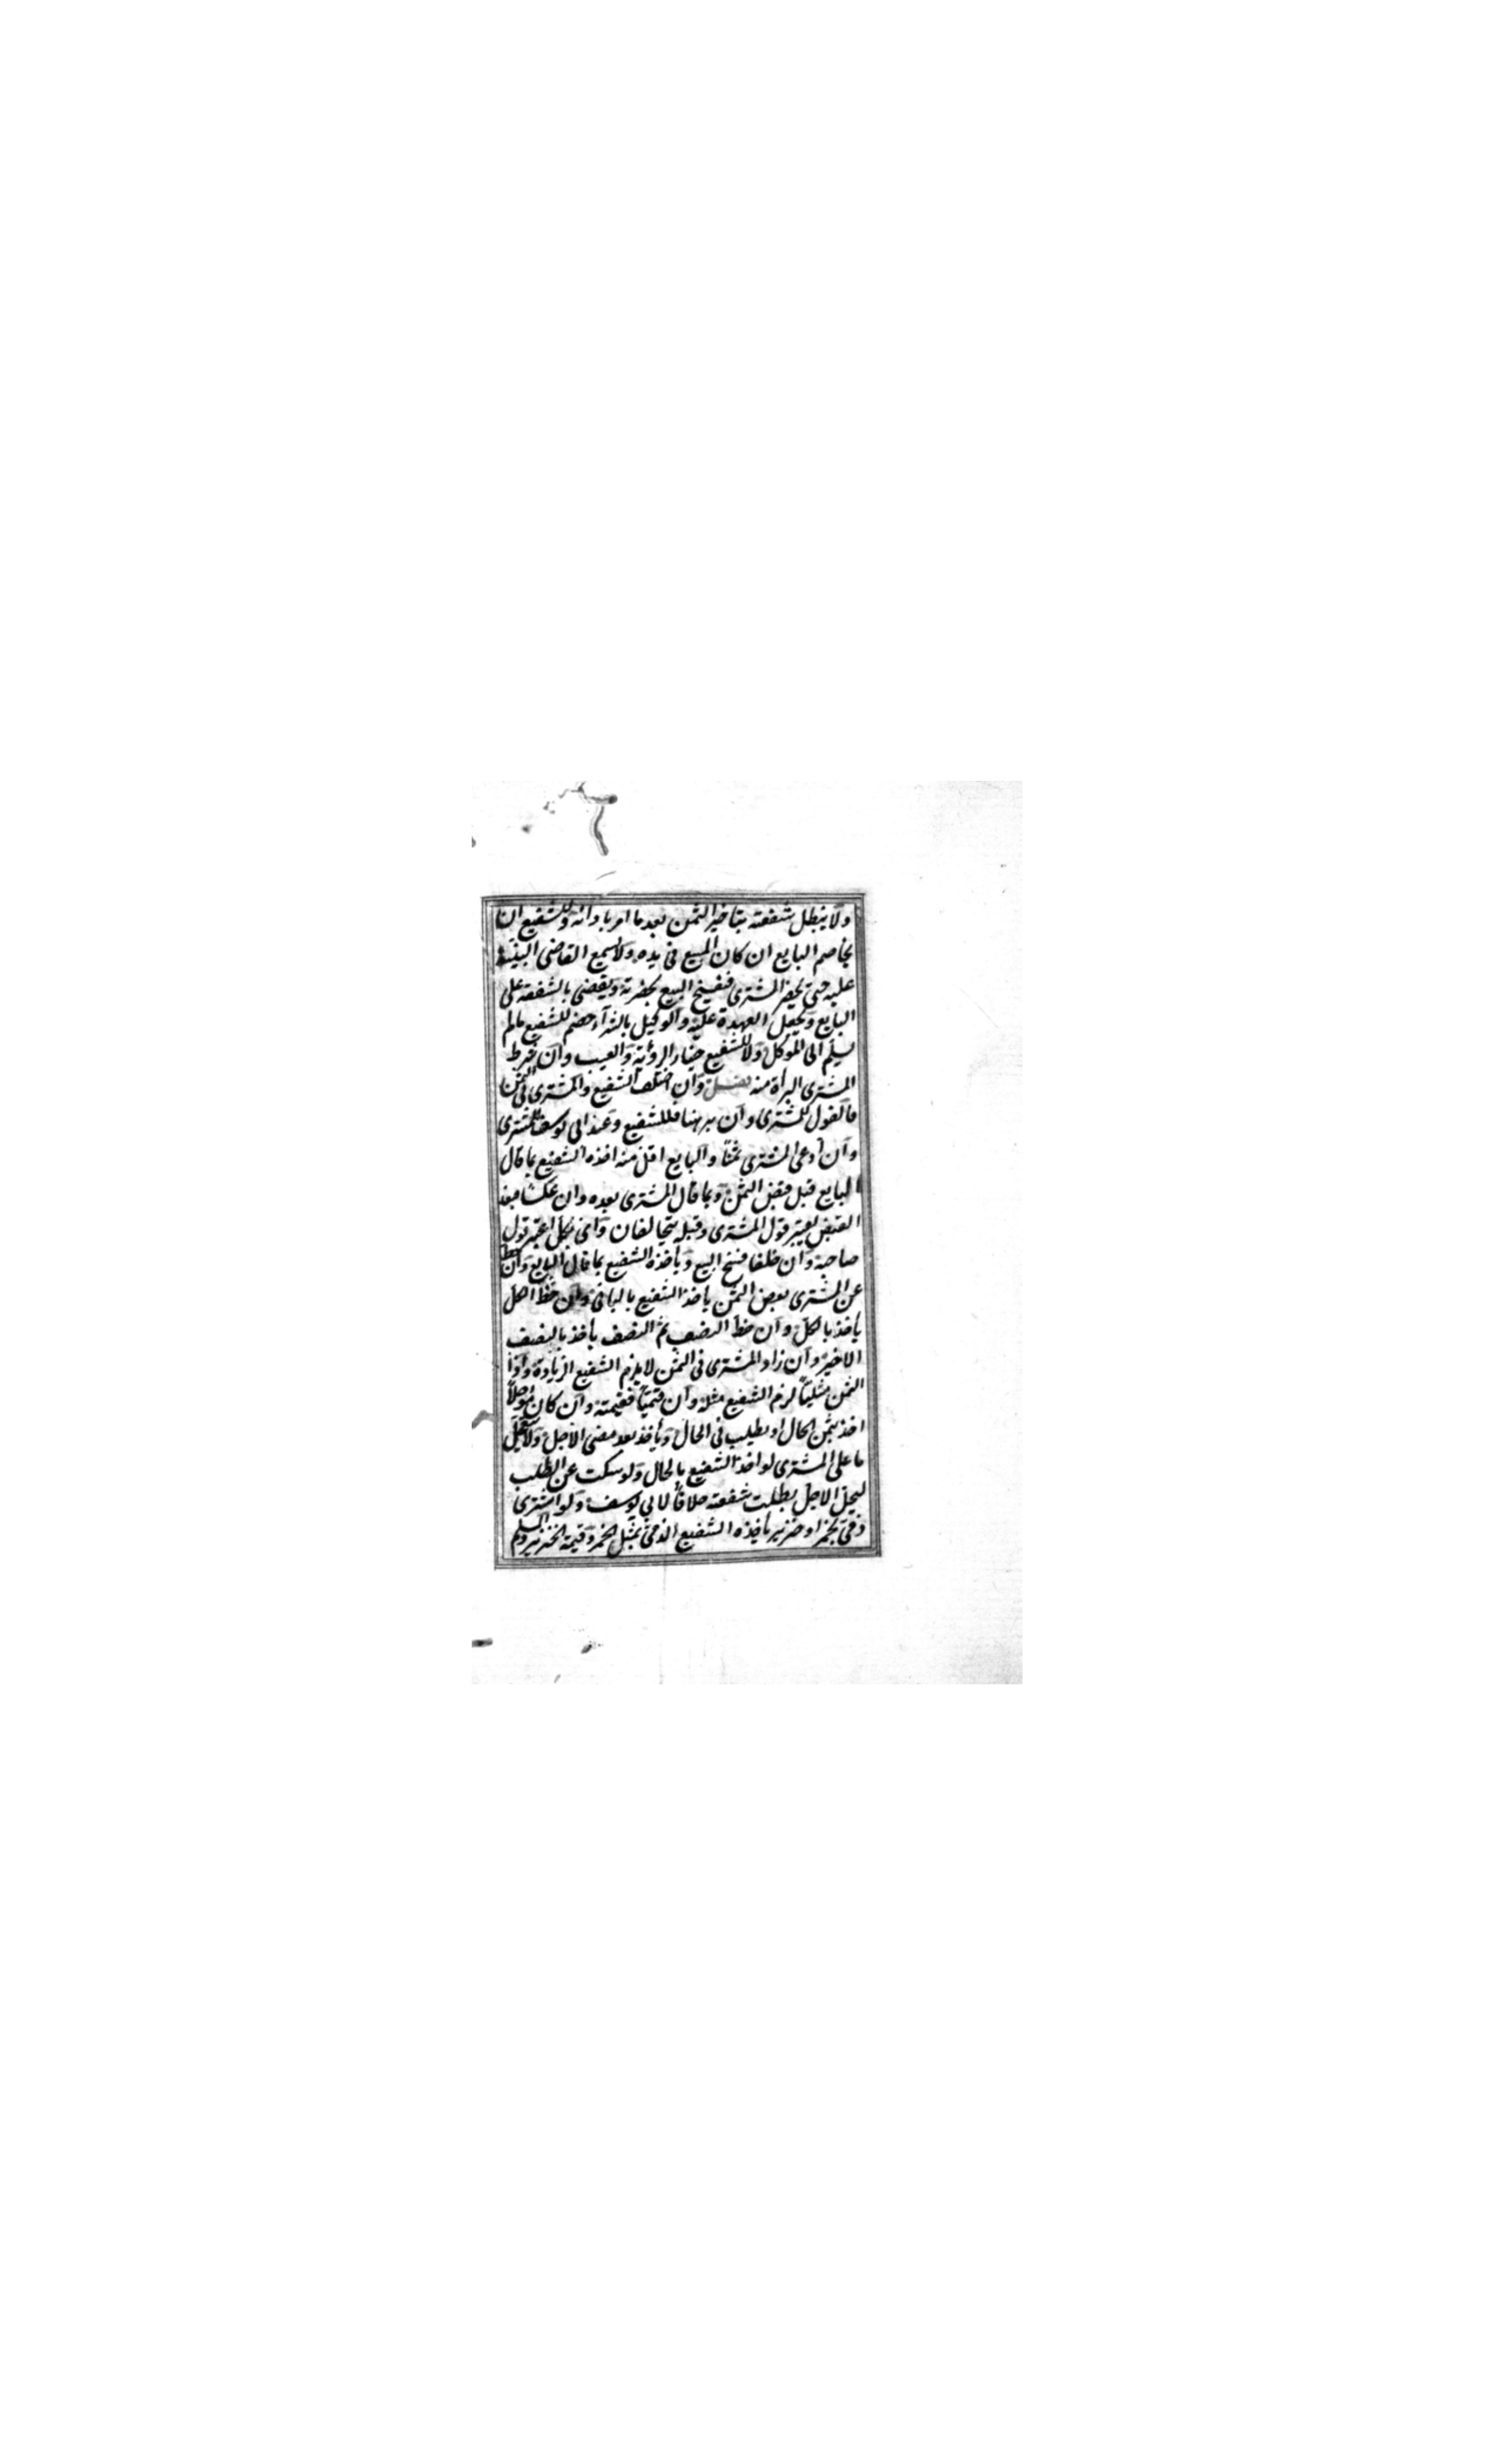 ولا يبطل شفعته بتاخير الثمن بعد ما امر بادائه وللشفيع ان
يخاصم البايع ان كان المبيع فى يده ولا يسمع القاضى البينة
عليه حتى يحضر المشترى فيفسخ البيع بحضرته ويقضى بالشفعة على
البايع ويجعل العهدة عليه والوكيل بالشرآء خصم للشفيع مالم
يسلم الى الموكل وللشفيع خيار الرؤية والعيب وان شرط
المشترى البرأة منه فصل وان اختلف الشفيع والمشترى فى الثمن
فالقول للمشترى وان برهنا فللشفيع وعند ابى يوسف للمشترى
وان ادعى المشترى ثمنا والبايع اقل منه اخذه الشفيع بما قال
البايع قبل قبض الثمن وبما قال المشترى بعده وان عكسا فبعد
القبض يعتبر قول المشترى وقبله يتحالفان واى نكل اعتبر قول
صاحبه وان حلفا فسخ البيع وياخذه الشفيع بما قال البايع وان حط
عن المشترى بعض الثمن ياخذ الشفيع بالباقى وان حط الكل
ياخذ بالكل وان حط النصف ثم النصف ياخذ بالنصف
الاخير وان زاد المشترى فى الثمن لا يلزم الشفيع الزيادة واذا
الثمن مثليا لزم الشفيع مثله وان قيميا فقيمته وان كان مؤجلا
اخذ بثمن حال او يطلب فى الحال وياخذ بعد مضى الاجل ولا يتعجل
ما على المشترى لو اخذ الشفيع بالحال ولو سكت عن الطلب
ليحل الاجل بطلت شفعته خلافا لابى يوسف ولو اشترى
ذمى بخمر او خنزير ياخذه الشفيع الذمى بمثل الخمر وقيمة الخنزير والمسلم